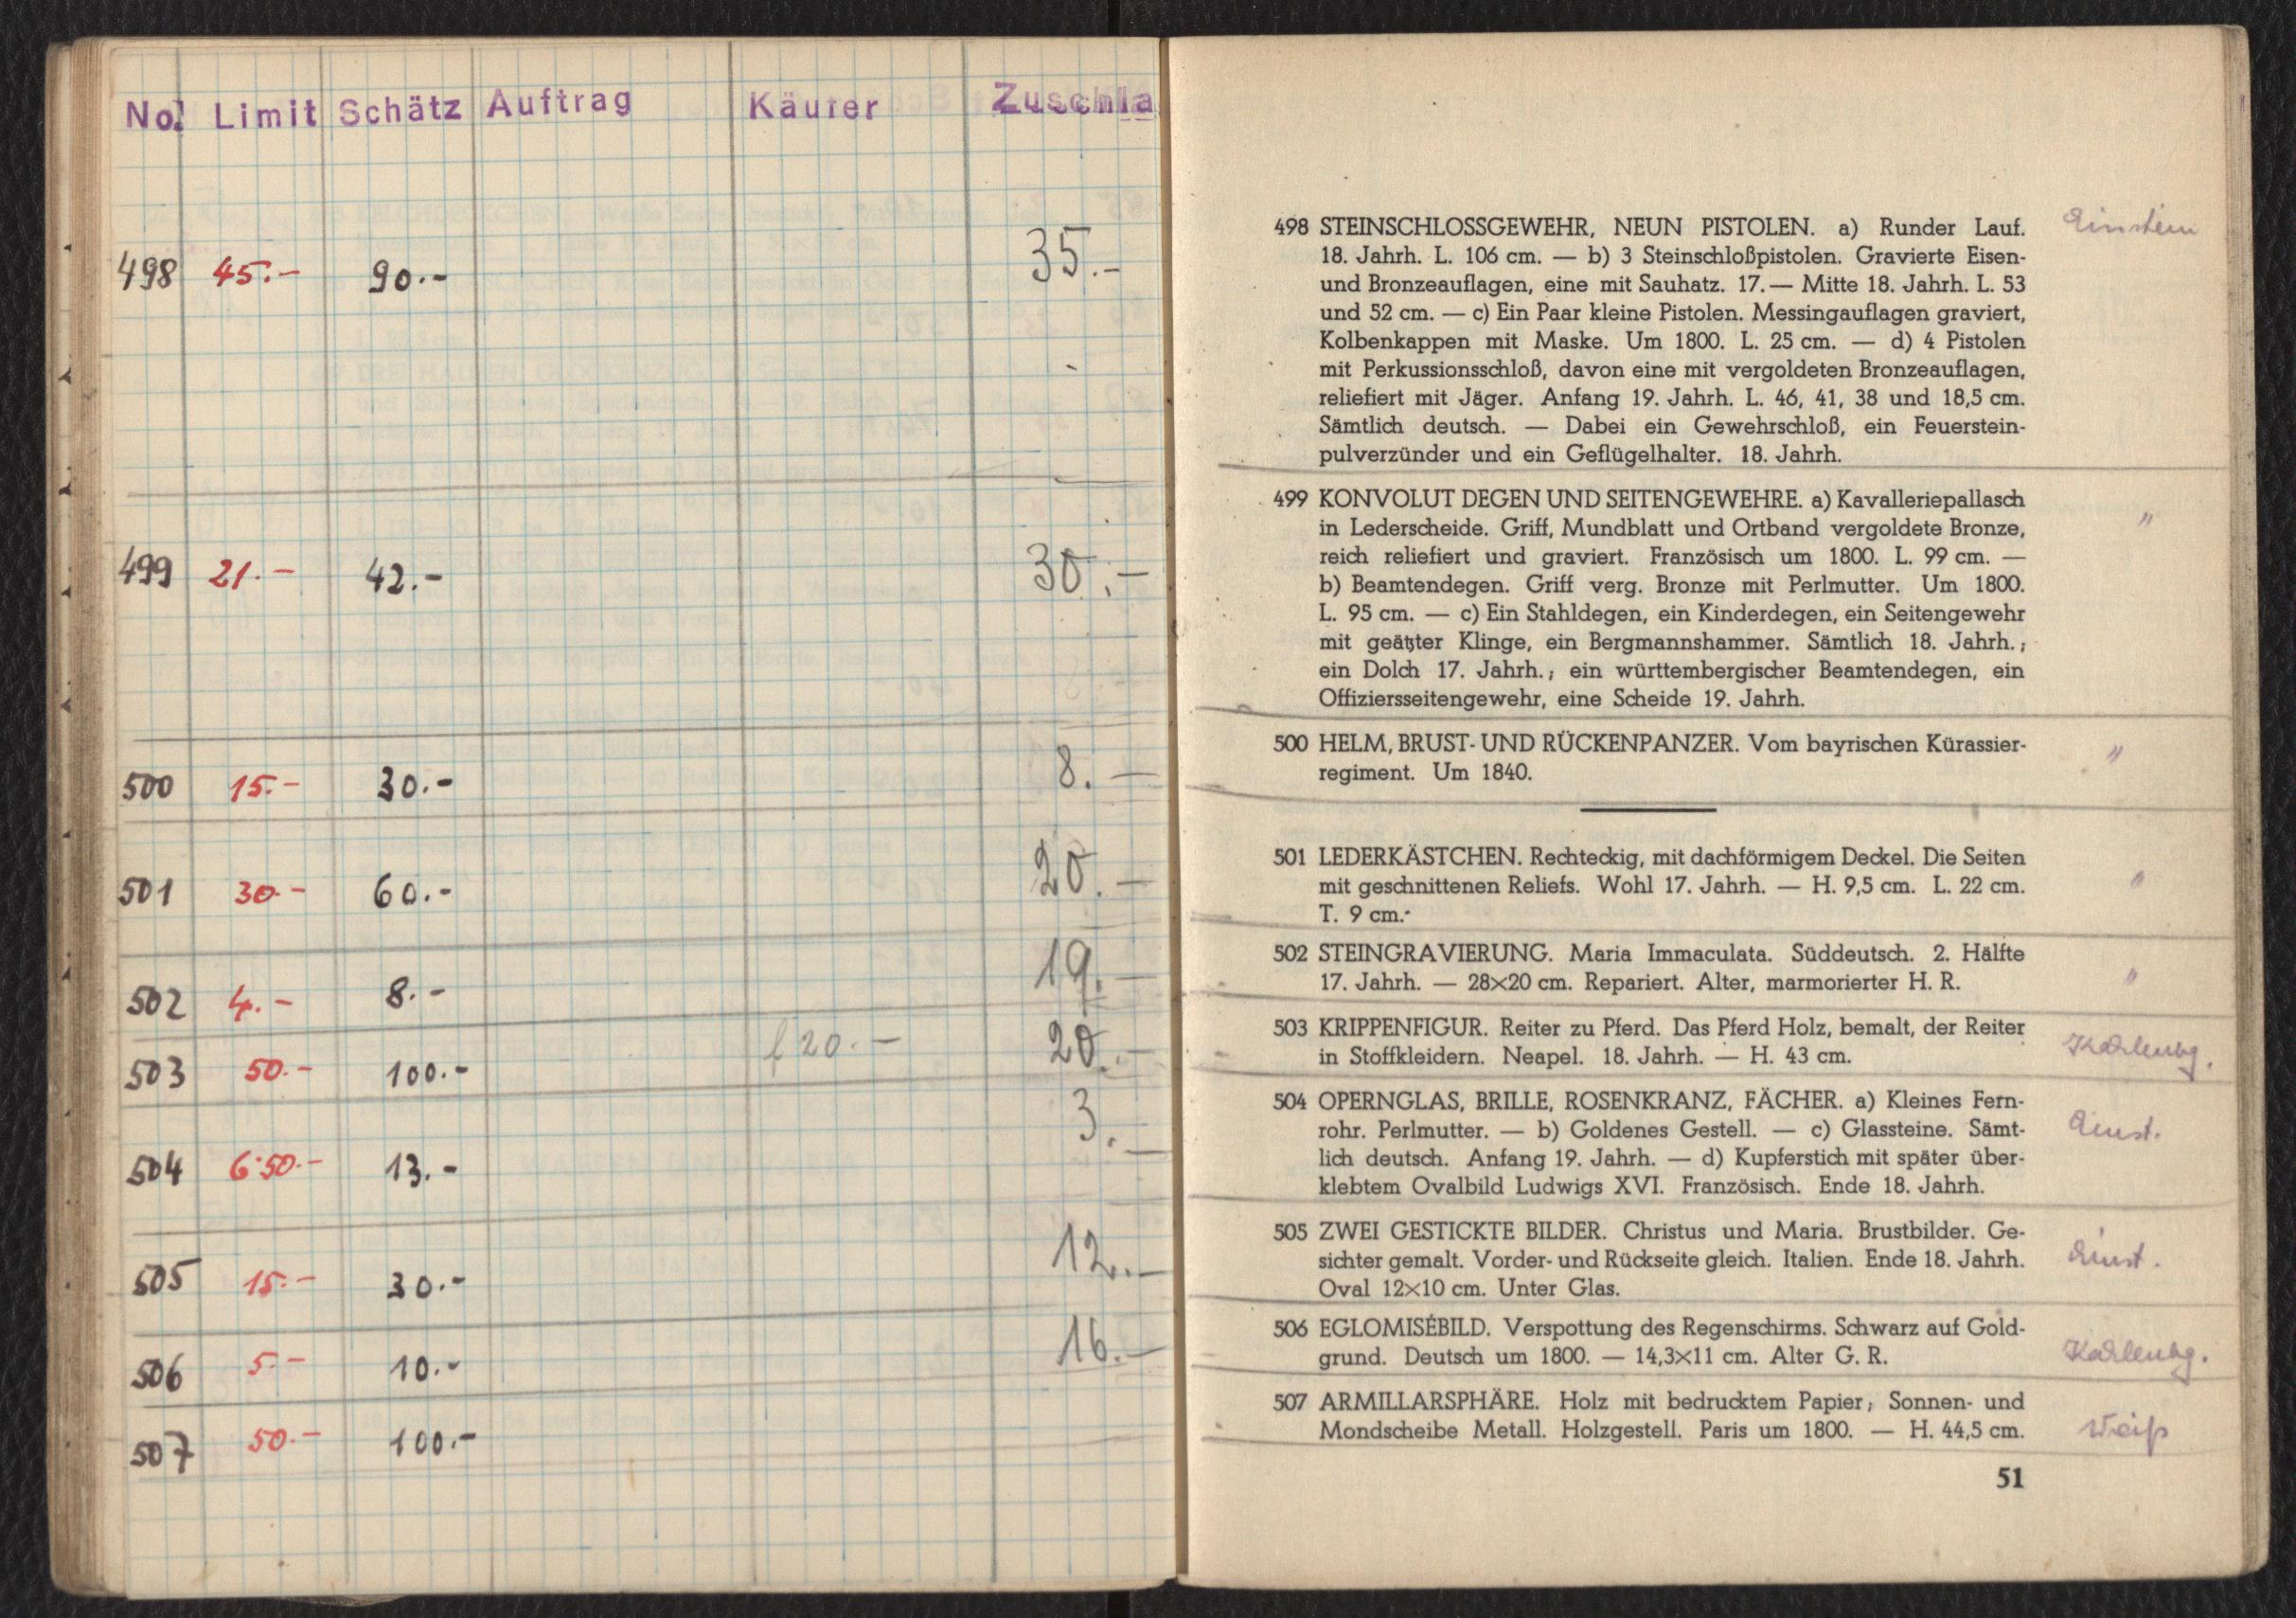 No. Limit Schätz Auftrag Käufer Zuschla
498 45.- 90.- 35.-
499 21.- 42.- 30.-
500 15.- 30.- 8.-
501 30.- 60.- 20.-
502 4.- 8.- 19.-
503 50.- 100.- 20.- 20.-
504 6.50.- 13.- 3.-
505 15.- 30.- 12.-
506 5.- 10.- 16.-
507 50.- 100.-
498 STEINSCHLOSSGEWEHR, NEUN PISTOLEN. a) Runder Lauf. Einstein
18. Jahrh. L. 106 cm. — b) 3 Steinschloßpistolen. Gravierte Eisen-
und Bronzeauflagen, eine mit Sauhatz. 17.— Mitte 18. Jahrh. L. 53
und 52 cm. — c) Ein Paar kleine Pistolen. Messingauflagen graviert,
Kolbenkappen mit Maske. Um 1800. L. 25 cm. — d) 4 Pistolen
mit Perkussionsschloß, davon eine mit vergoldeten Bronzeauflagen,
reliefiert mit Jäger. Anfang 19. Jahrh. L. 46, 41, 38 und 18,5 cm.
Sämtlich deutsch. — Dabei ein Gewehrschloß, ein Feuerstein-
pulverzünder und ein Geflügelhalter. 18. Jahrh.
499 KONVOLUT DEGEN UND SEITENGEWEHRE. a) Kavalleriepallasch "
in Lederscheide. Griff, Mundblatt und Ortband vergoldete Bronze,
reich reliefiert und graviert. Französisch um 1800. L. 99 cm. —
b) Beamtendegen. Griff verg. Bronze mit Perlmutter. Um 1800.
L. 95 cm. — c) Ein Stahldegen, ein Kinderdegen, ein Seitengewehr
mit geätzter Klinge, ein Bergmannshammer. Sämtlich 18. Jahrh.;
ein Dolch 17. Jahrh.; ein württembergischer Beamtendegen, ein
Offiziersseitengewehr, eine Scheide 19. Jahrh.
500 HELM, BRUST- UND RÜCKENPANZER. Vom bayrischen Kürassier- "
regiment. Um 1840.
501 LEDERKÄSTCHEN. Rechteckig, mit dachförmigem Deckel. Die Seiten "
mit geschnittenen Reliefs. Wohl 17. Jahrh. — H. 9,5 cm. L. 22 cm.
T. 9 cm.
502 STEINGRAVIERUNG. Maria Immaculata. Süddeutsch. 2. Hälfte "
17. Jahrh. — 28×20 cm. Repariert. Alter, marmorierter H. R.
503 KRIPPENFIGUR. Reiter zu Pferd. Das Pferd Holz, bemalt, der Reiter
in Stoffkleidern. Neapel. 18. Jahrh. — H. 43 cm.
504 OPERNGLAS, BRILLE, ROSENKRANZ, FÄCHER. a) Kleines Fern- Einst.
rohr. Perlmutter. — b) Goldenes Gestell. — c) Glassteine. Sämt-
lich deutsch. Anfang 19. Jahrh. — d) Kupferstich mit später über-
klebtem Ovalbild Ludwigs XVI. Französisch. Ende 18. Jahrh.
505 ZWEI GESTICKTE BILDER. Christus und Maria. Brustbilder. Ge- Einst.
sichter gemalt. Vorder- und Rückseite gleich. Italien. Ende 18. Jahrh.
Oval 12×10 cm. Unter Glas.
506 EGLOMISÉBILD. Verspottung des Regenschirms. Schwarz auf Gold-
grund. Deutsch um 1800. — 14,3×11 cm. Alter G. R.
507 ARMILLARSPHÄRE. Holz mit bedrucktem Papier; Sonnen- und Weiß
Mondscheibe Metall. Holzgestell. Paris um 1800. — H. 44,5 cm.
51